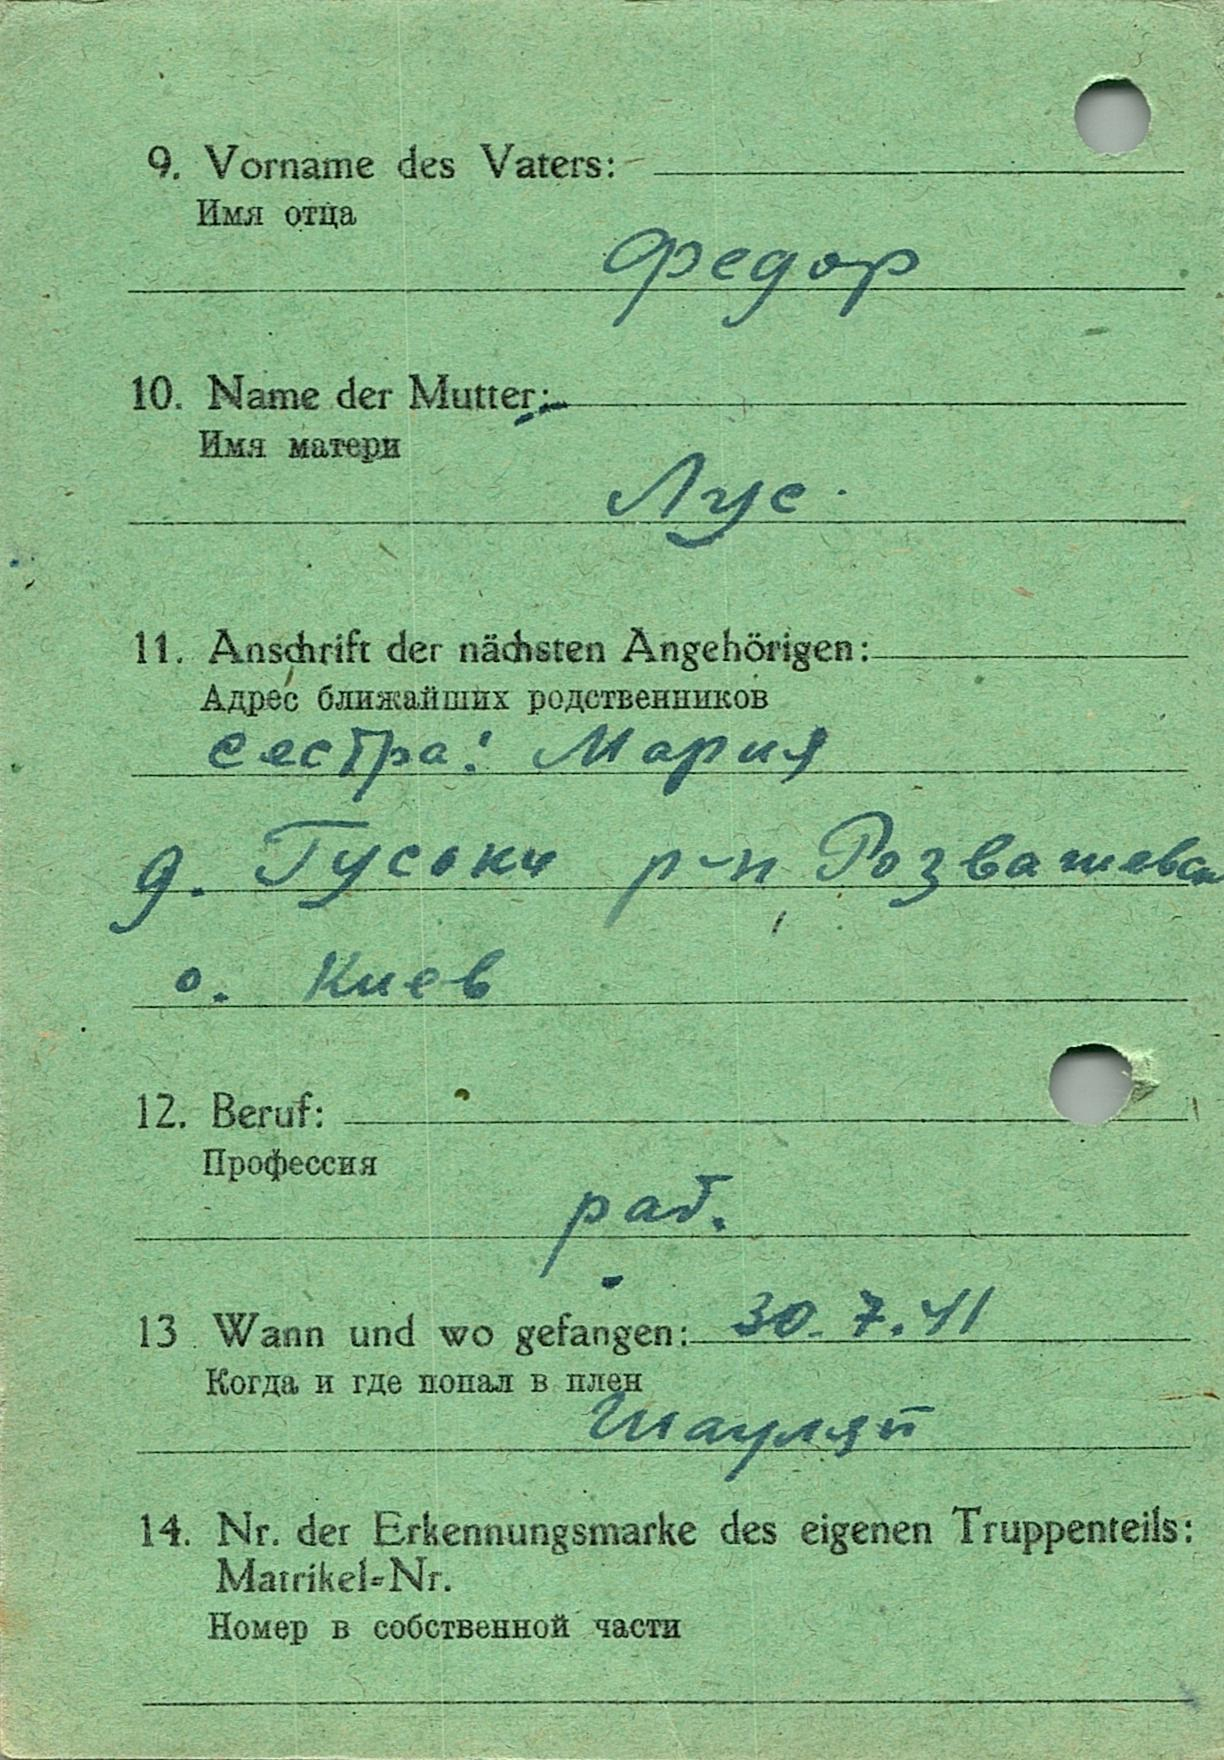 9. Vorname des Vaters:
Имя отца
Федор
10. Name der Mutter:
Имя матери
Лус.
11. Anschrift der nächsten Angehörigen:
Адрес ближайших родственников
сестра: Мария
д. Гусоки р-н Розвашевск
о. Киев
12. Beruf:
Профессия
раб.
13 Wann und wo gefangen: 30.7.41
Когда и где попал в плен
Шауляй
14. Nr. der Erkennungsmarke des eigenen Truppenteils:
Matrikel-Nr.
Номер в собственной части